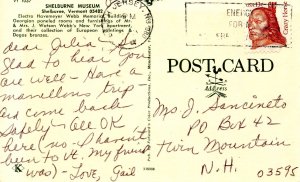 SHELBURNE MUSEUM
Shelburne, Vermont 05482
Electra Havemeyer Webb Memorial Building
Georgian paneled rooms and furnishings of
& Mrs. J. Watson Webb's New York
and their collection of European paintings &
Degas bronzes.
JERSEY
PM
ENERGY
FOR
Crazy Horse
USA
dear Julia - As
Glad to hear you
are well - Have a
marvellous trip
and come back
Safely - All OK
here (no - I haven't
been to Vt. My friend
was) - Love, Gail
POST CARD
Address
Ms J. Sancinato
PO Box 42
Twin Mountain
N.H. 03595
K